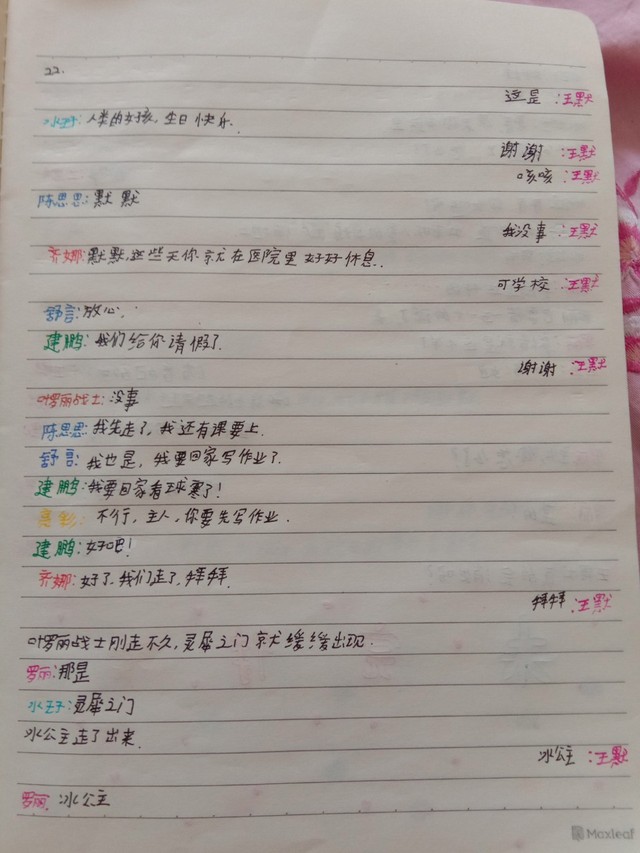 22.
这是:王默
水王子:人类的女孩,生日快乐.
谢谢:王默
咳咳:王默
陈思思:默默
我没事:王默
齐娜:默默,这些天你就在医院里好好休息.
可学校:王默
舒言:放心.
建鹏:我们给你请假了.
谢谢:王默
叶罗丽战士:没事
陈思思:我先走了,我还有课要上.
舒言:我也是,我要回家写作业了.
建鹏:我要回家看球赛了!
亮彩:不行,主人,你要先写作业.
建鹏:好吧!
齐娜:好了,我们走了,拜拜.
拜拜:王默
叶罗丽战士刚走不久,灵犀之门就缓缓出现.
罗丽:那是
水王子:灵犀之门
冰公主走了出来.
冰公主:王默
罗丽:冰公主
Moxleaf